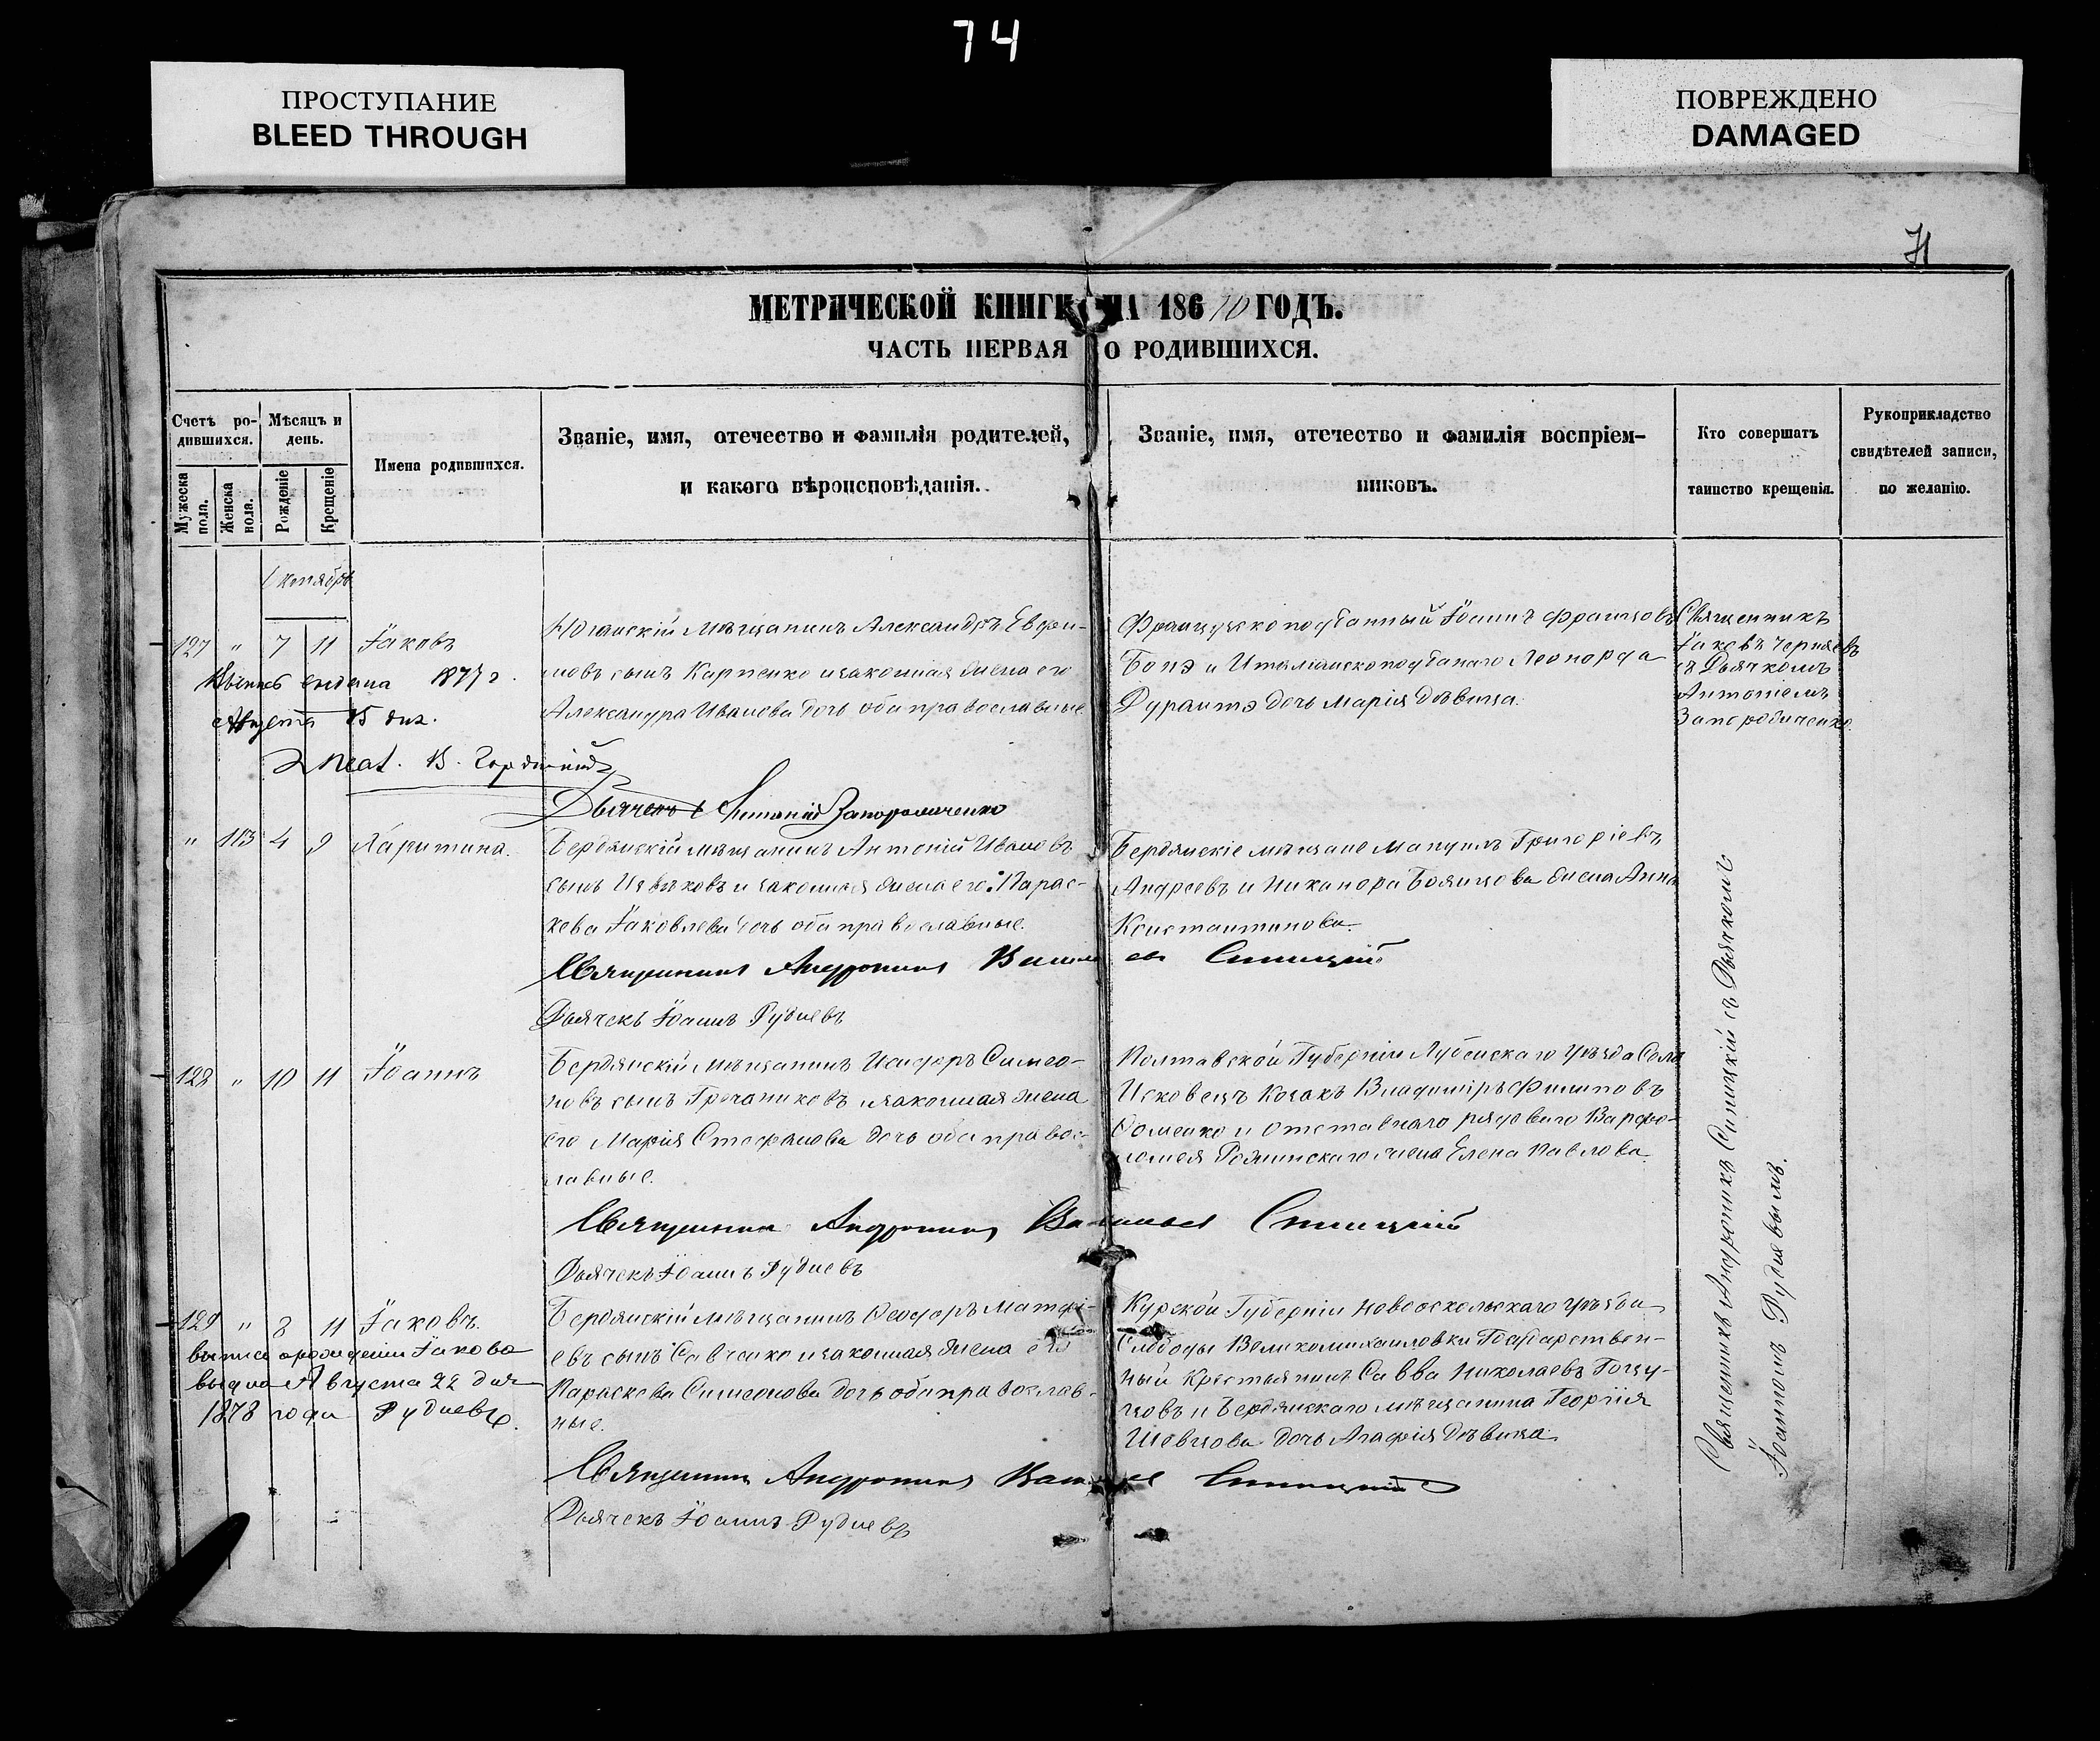 74
ПРОСТУПАНИЕ
BLEED THROUGH
ПОВРЕЖДЕНО
DAMAGED
МЕТРИЧЕСКОЙ КНИГИ НА 18670 ГОДЪ.
ЧАСТЬ ПЕРВАЯ О РОДИВШИХСЯ.
Счетъ ро-
дившихся.
Мѣсяцъ и
день.
Мужеска
пола.
Женска
пола.
Рожденіе
Крещеніе
Имена родившихся.
Званіе, имя, отечество и фамилія родителей,
и какого вѣроисповѣданія.
Званіе, имя, отечество и фамилія воспріем-
никовъ.
Кто совершатъ
таинство крещенія.
Рукоприкладство
свидѣтелей записи,
по желанію.
Октябрь
127 " 7 11 Іаковъ
выдана 1877 г.
Августа 15 дня.
мѣщанинъ Александръ Евфи-
мовъ сынъ Карпенко и законная жена его
Александра Иванова дочь оба православные.
Французскоподданный Іоаннъ Францовъ
Бонэ и Италіанскоподданаго Леонарда
Дурантэ дочь Марія дѣвица.
Священникъ
Іаковъ Черняевъ
съ Дьячкомъ
Антоніемъ
Запорожченко.
Дьячекъ Антоній Запорожченко
" 113 4 9 Харитина.
Бердянскій мѣщанинъ Антоній Ивановъ
сынъ Извѣковъ и законная жена его Парас-
кева Іаковлева дочь оба православные.
Бердянскіе мѣщане Мануилъ Григоріевъ
Андреевъ и Никанора Боянцова жена Анна
Константинова.
Священникъ Андроникъ Васильевъ Синицкій
Дьячекъ Іоаннъ Рудневъ
128 " 10 11 Іоаннъ
Бердянскій мѣщанинъ Исидоръ Симео-
новъ сынъ Гречаниковъ и законная жена
его Марія Стефанова дочь оба правос-
лавные.
Полтавской Губерніи Лубенскаго уѣзда Села
Исковецъ Козакъ Владиміръ Филиповъ
Фоменко и отставнаго рядоваго Варфо-
ломея жена Елена Павлова.
Священникъ Андроникъ Васильевъ Синицкій
Дьячекъ Іоаннъ Рудневъ
129 " 8 11 Іаковъ.
выпись о рожденіи Іакова
выдана Августа 22 дня
1878 года Рудневъ.
Бердянскій мѣщанинъ Феодоръ Матфі-
евъ сынъ Савченко и законная жена его
Параскева Симеонова дочь оба православ-
ные.
Курской Губерніи Новооскольскаго уѣзда
Слободы Великомихаиловки Государствен-
ный Крестьянинъ Савва Николаевъ
и Бердянскаго мѣщанина Георгія
Шевцова дочь Агафія дѣвица.
Священникъ Андроникъ Васильевъ Синицкій
Дьячекъ Іоаннъ Рудневъ
Священникъ Андроникъ Синицкій съ Дьячкомъ
Іоанномъ Рудневымъ.